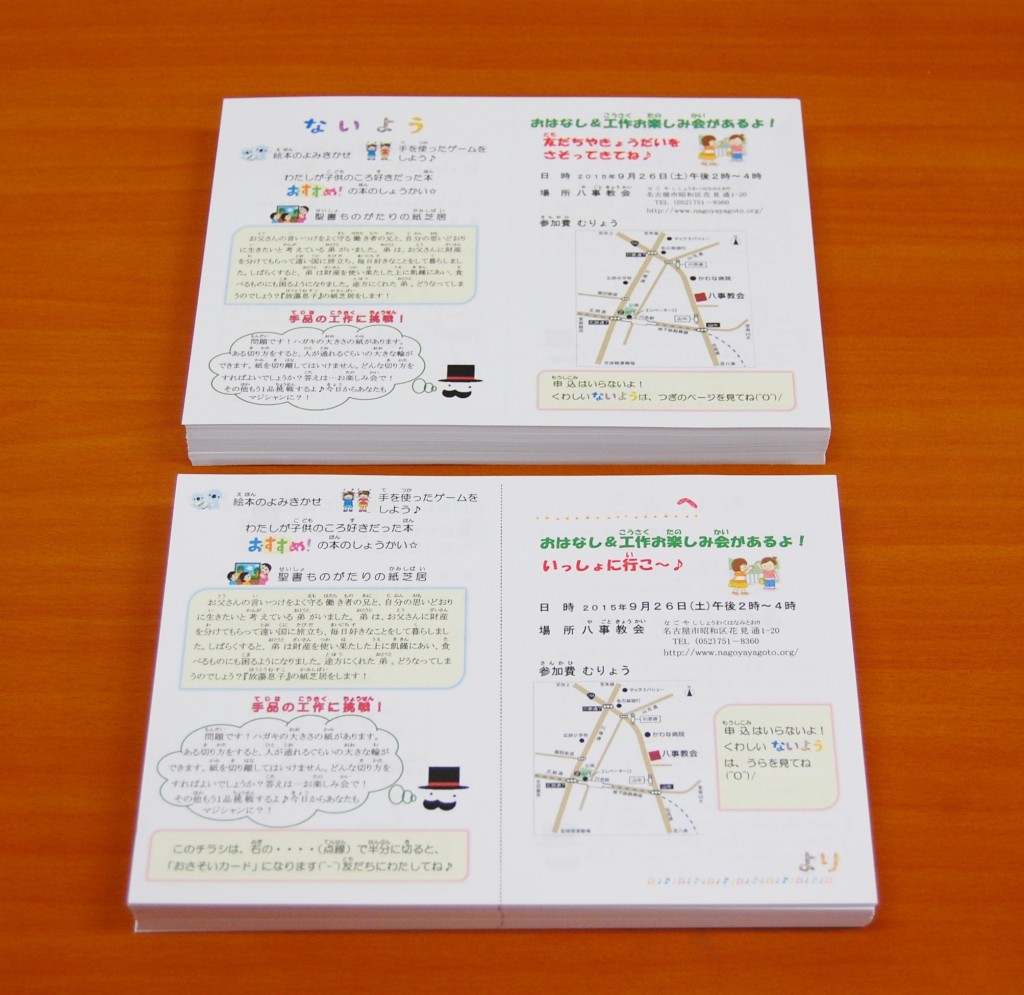 ないよう
絵本のよみきかせ
手を使ったゲームを
しよう♪
わたしが子供のころ好きだった本
おすすめ!の本のしょうかい☆
聖書ものがたりの紙芝居
お父さんの言いつけをよく守る働き者の兄と、自分の思いどおり
に生きたいと考えている弟がいました。弟は、お父さんに財産
を分けてもらって遠い国に旅立ち、毎日好きなことをして暮らしまし
た。しばらくすると、弟は財産を使い果たした上に飢饉にあい、食
べるものにも困るようになりました。途方にくれた弟。どうなってしま
うのでしょう?『放蕩息子』の紙芝居をします!
手品の工作に挑戦!
問題です!ハガキの大きさの紙があります。
ある切り方をすると、人が通れるぐらいの大きな輪が
できます。紙を切り離してはいけません。どんな切り方を
すればよいでしょうか?答えは…お楽しみ会で!
その他もう1品挑戦するよ♪今日からあなたも
マジシャンに?!
おはなし&工作お楽しみ会があるよ!
友だちやきょうだいを
さそってきてね♪
日 時 2015年9月26日(土)午後2時~4時
場 所 八事教会 名古屋市昭和区花見通1-20
TEL (052)751-8360
http://www.nagoyayagoto.org/
参加費 むりょう
マックスバリュー
かわな病院
八事教会
申込はいらないよ!
くわしいないようは、つぎのページを見てね(^O^)/
絵本のよみきかせ
手を使ったゲームを
しよう♪
わたしが子供のころ好きだった本
おすすめ!の本のしょうかい☆
聖書ものがたりの紙芝居
お父さんの言いつけをよく守る働き者の兄と、自分の思いどおり
に生きたいと考えている弟がいました。弟は、お父さんに財産
を分けてもらって遠い国に旅立ち、毎日好きなことをして暮らしまし
た。しばらくすると、弟は財産を使い果たした上に飢饉にあい、食
べるものにも困るようになりました。途方にくれた弟。どうなってしま
うのでしょう?『放蕩息子』の紙芝居をします!
手品の工作に挑戦!
問題です!ハガキの大きさの紙があります。
ある切り方をすると、人が通れるぐらいの大きな輪が
できます。紙を切り離してはいけません。どんな切り方を
すればよいでしょうか?答えは…お楽しみ会で!
その他もう1品挑戦するよ♪今日からあなたも
マジシャンに?!
このチラシは、右の・・・・(点線)で半分に切ると、
「おさそいカード」になります(^-^)友だちにわたしてね♪
へ
おはなし&工作お楽しみ会があるよ!
いっしょに行こ~♪
日 時 2015年9月26日(土)午後2時~4時
場 所 八事教会 名古屋市昭和区花見通1-20
TEL (052)751-8360
http://www.nagoyayagoto.org/
参加費 むりょう
マックスバリュー
かわな病院
八事教会
申込はいらないよ!
くわしい ないよう
は、うらを見てね
(^O^)/
より